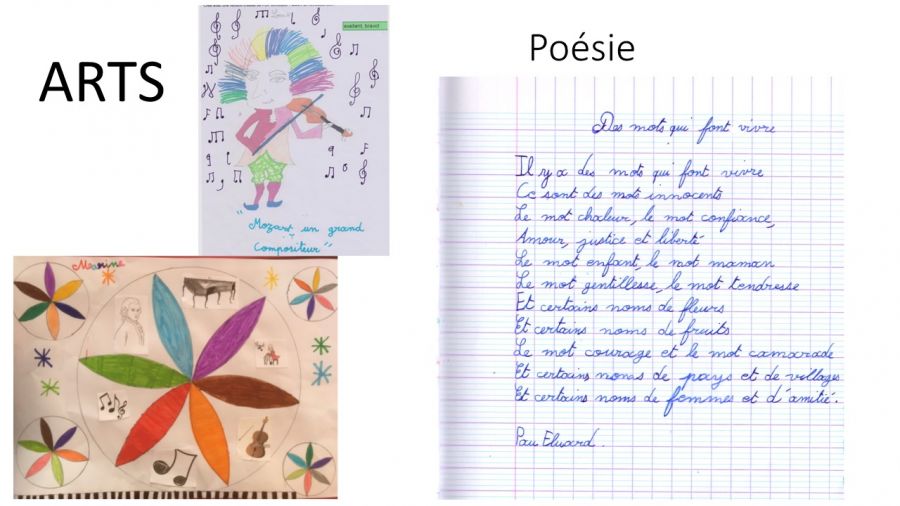 ARTS
excellent, bravo!
"Mozart un grand
Compositeur"
Poésie
Des mots qui font vivre
Il y a des mots qui font vivre
Ce sont des mots innocents
Le mot chaleur, le mot confiance,
Amour, justice et liberté
Le mot enfant, le mot maman
Le mot gentillesse, le mot tendresse
Et certains noms de fleurs
Et certains noms de fruits
Le mot courage et le mot camarade
Et certains noms de pays et de villages
Et certains noms de femmes et d'amitié.
Pau Eluard.